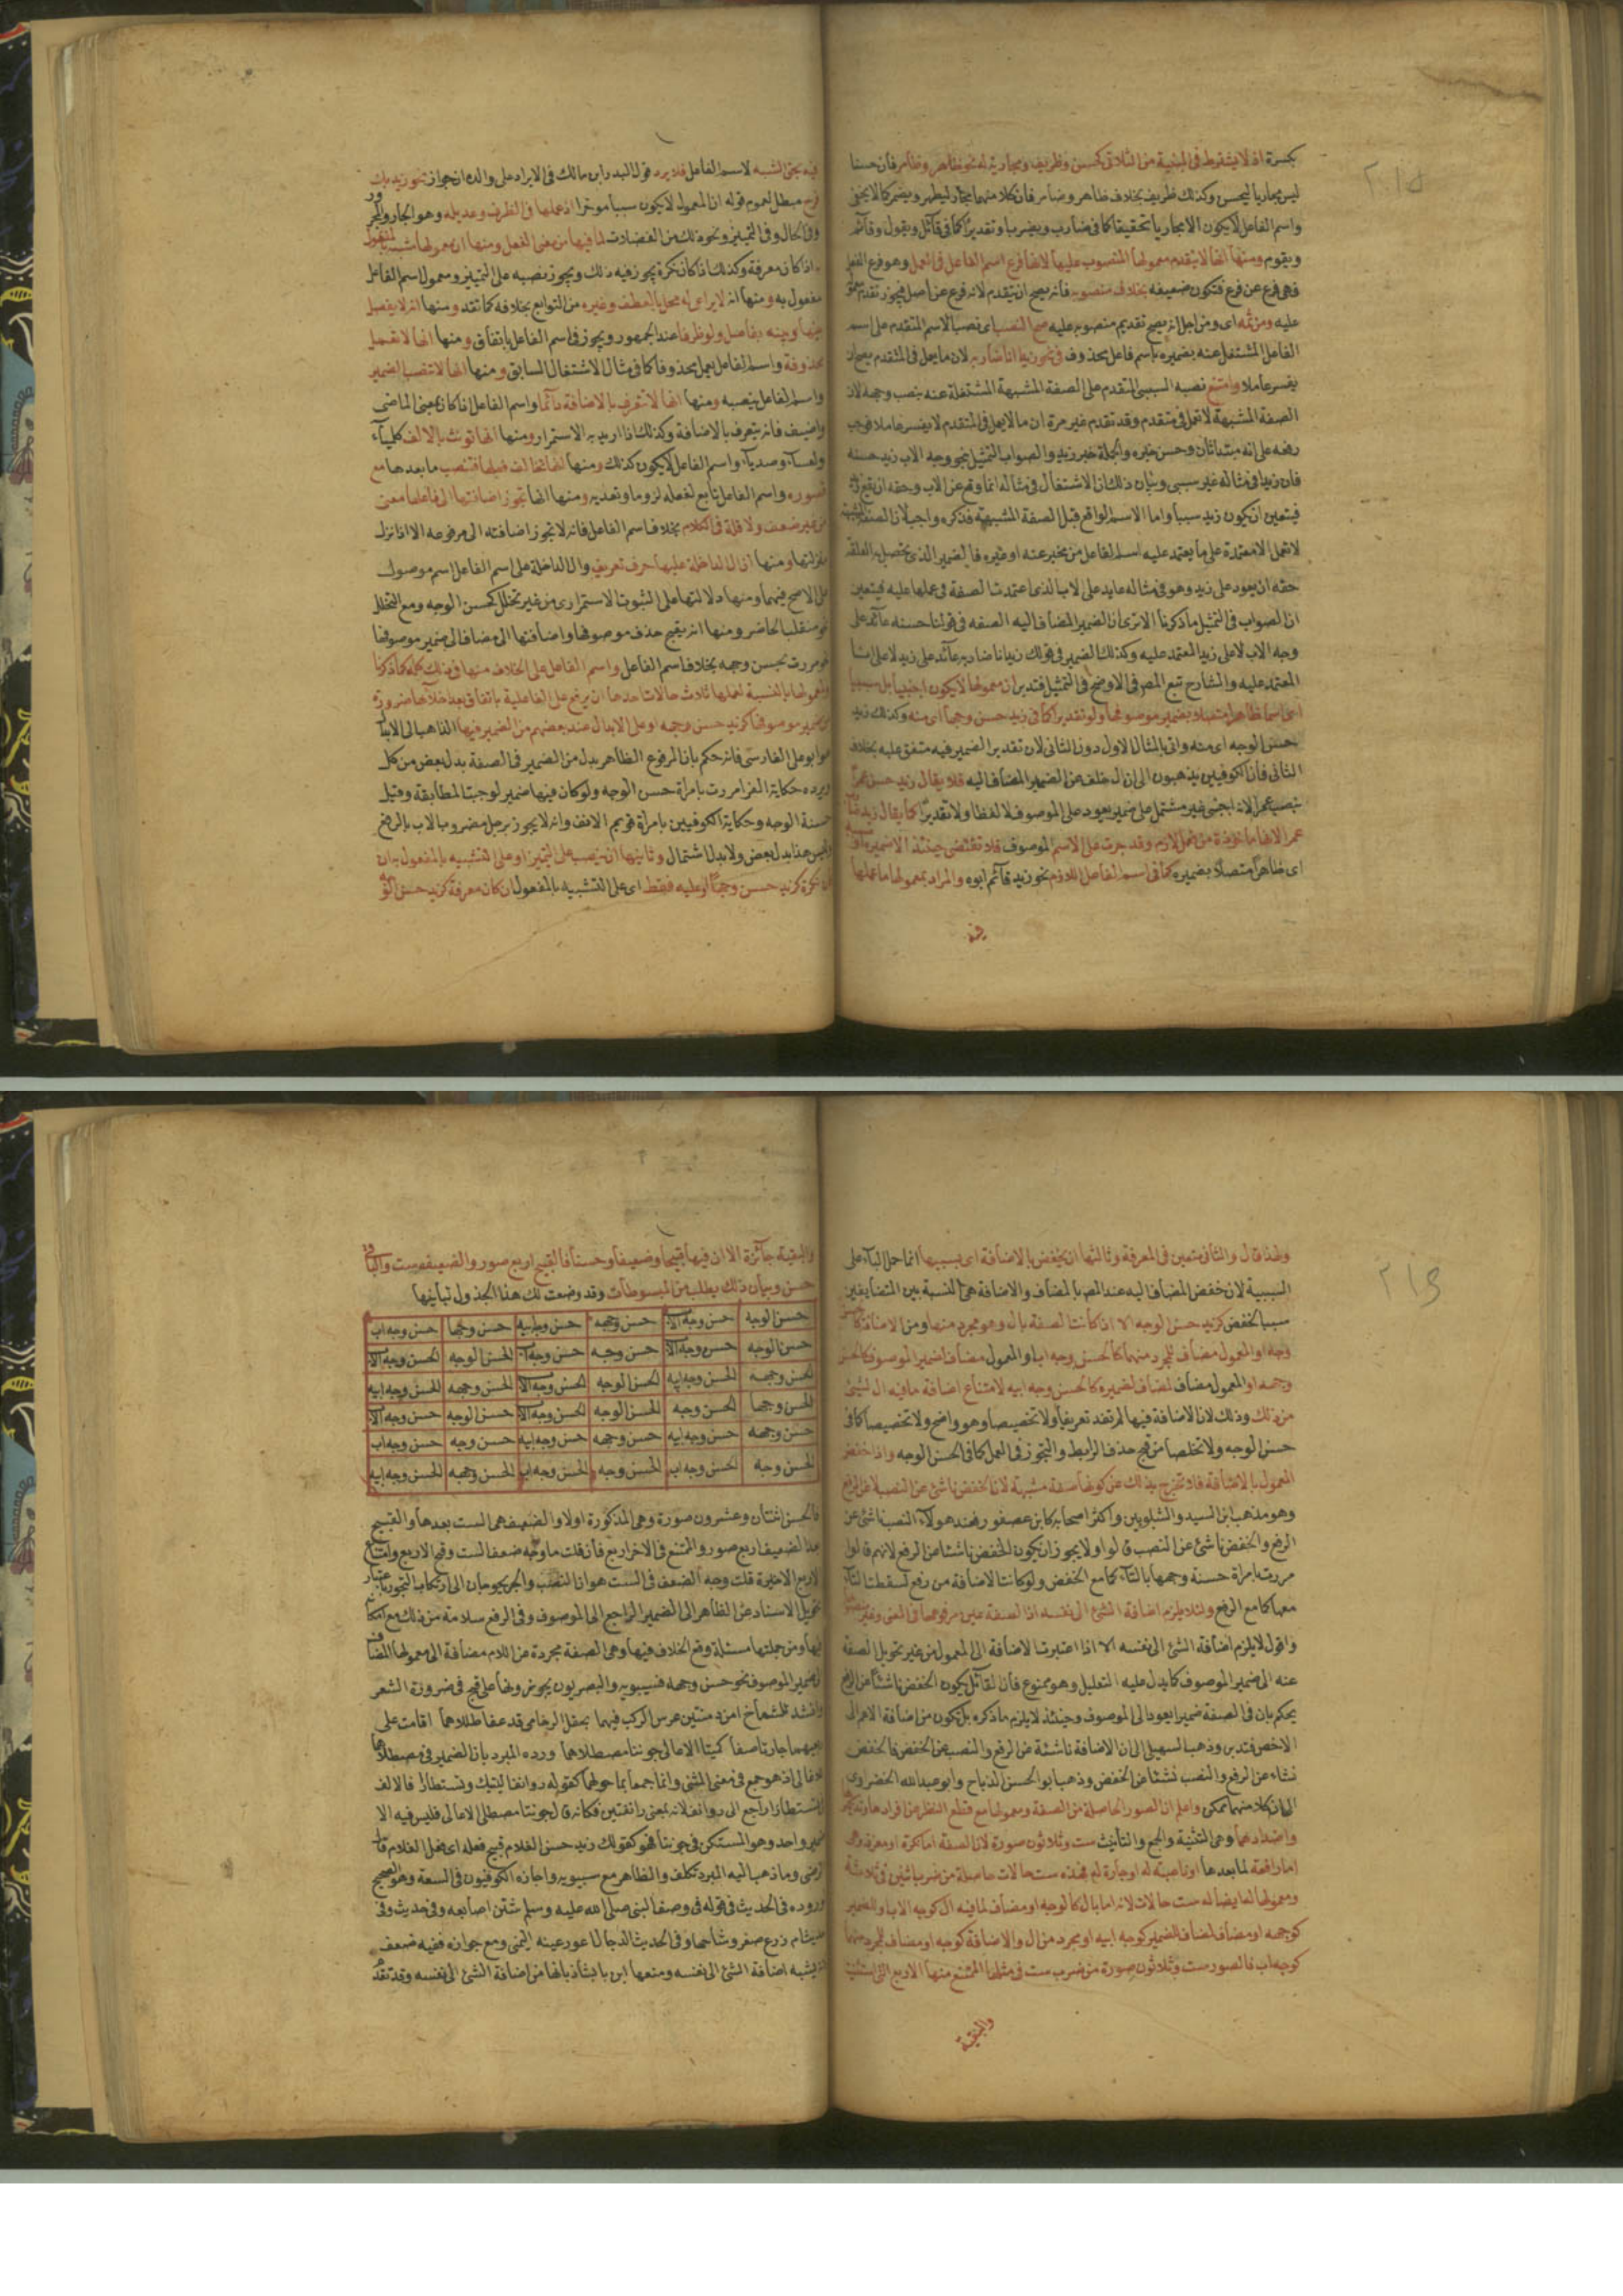 بكسرة اذ لا يشترط في المبنية من الثلاثي كحسن وظريف ومجاريته له نحو طاهر وضامر فان حسنا
ليس مجاريا ليحسن وكذلك ظريف بخلاف طاهر وضامر فان كلا منهما مجار ليطهر ويضمر كما لا يخفى
واسم الفاعل لا يكون الا مجاريا تحقيقا كما في ضارب ويضرب او تقديرا كما في قائل ويقول وقائم
ويقوم ومنها انها لا يتقدم معمولها المنصوب عليها لانها فرع اسم الفاعل في العمل وهو فرع الفعل
فهي فرع عن فرع فتكون ضعيفة بخلاف منصوبه فانه يصح ان يتقدم لانه فرع عن اصل فيجوز تقدم
عليه ومن ثمه اى ومن اجل انه يصح تقديم منصوبه عليه صح النصب اى نصب الاسم المتقدم على اسم
الفاعل المشتغل عنه بضميره باسم فاعل محذوف في نحو زيدا انا ضاربه لان ما يعمل في المتقدم يصح ان
يفسر عاملا وامتنع نصبه السببى المتقدم على الصفة المشبهة المشتغلة عنه بنصب وجهه لان
الصفة المشبهة لا تعمل في متقدم وقد تقدم غير مرة ان ما لا يعمل في المتقدم لا يفسر عاملا فوجب
رفعه على انه مبتدأ ثان وحسن خبره والجملة خبر زيد والصواب التمثيل بنحو وجه الاب زيد حسنه
فان زيدا في مثاله غير سببى وبيان ذلك ان الاشتغال في مثاله انما وقع عن الاب وحقه ان يقع
فيتعين ان يكون زيد سببا واما الاسم الواقع قبل الصفة المشبهة فذكره واجب لان الصفة المشبهة
لا تعمل الا معتمدة على ما يعتمد عليه اسم الفاعل من مخبر عنه او غيره فالضمير الذى يحصل به العلقة
حقه ان يعود على زيد وهو في مثاله عايد على الاب الذى اعتمدت الصفة في عملها عليه فيتعين
ان الصواب في التمثيل ما ذكرنا الا ترى ان الضمير المضاف اليه الصفه في قولنا حسنه عائد على
وجه الاب لا على زيد المعتمد عليه وكذلك الضمير في قولك زيد انا ضاربه عائد على زيد لا على انا
المعتمد عليه والشارح تبع المصر في الاوضح في التمثيل فتدبر ان معمولها لا يكون اجنبيا بل سببيا
اى اسما ظاهرا متصلا بضمير موصوفها ولو تقديرا كما في زيد حسن وجها اى منه وكذلك زيد
حسن الوجه اى منه واتى بالمثال الاول دون الثانى لان تقدير الضمير فيه متفق عليه بخلاف
الثانى فان الكوفيين يذهبون الى ان ال خلف عن الضمير المضاف اليه فلا يقال زيد حسن عمرا
بنصب عمرا لانه اجنبى غير مشتمل على ضمير يعود على الموصوف لا لفظا ولا تقديرا كما يقال زيد
عمرا لانها ماخوذة من فعل لازم وقد جرت على الاسم الموصوف فلا تقتضى حينئذ الا ضميره او
اى ظاهرا متصلا بضميره كما في اسم الفاعل اللازم نحو زيد قائم ابوه والمراد بمعمولها ما عملها
فيه
فيه بحق الشبه لاسم الفاعل فلا يرد قول البدر ابن مالك في الايراد على والده ان جواز نحو زيد بك
فرح مبطل لعموم قوله ان المعمول لا يكون سببا موخرا اذ عملها في الظرف وعديله وهو الجار والمجرور
وفي الحال وفي التمييز ونحو ذلك من الفضلات لما فيها من معنى الفعل ومنها ان معمولها مشبه بالمفعول
اذا كان معرفة وكذلك اذا كان نكرة يجوز فيه ذلك ويجوز نصبه على التمييز ومعمول اسم الفاعل
مفعول به ومنها انه لا يراعى له محل بالعطف وغيره من التوابع بخلافه كما تقدم ومنها انه لا يفصل
بينها وبينه بفاصل ولو ظرفا عند الجمهور ويجوز في اسم الفاعل باتفاق ومنها انها لا تعمل
محذوفة واسم الفاعل يعمل محذوفا كما في مثال الاشتغال السابق ومنها انها لا تنصب الضمير
واسم الفاعل ينصبه ومنها انها لا تتعرف بالاضافة دائما واسم الفاعل اذا كان بمعنى الماضى
واضيف فانه يتعرف بالاضافة وكذلك اذا اريد به الاستمرار ومنها انها تونث بالالف
واسم الفاعل لا يكون كذلك ومنها انها تخالف فعلها فتنصب ما بعدها مع
قصوره واسم الفاعل تابع لفعله لزوما وتعدية ومنها انها تجوز اضافتها الى فاعلها معنى
من غير ضعف ولا قلة في الكلام بخلاف اسم الفاعل فانه لا يجوز اضافته الى مرفوعه الا اذا نزل
منزلتها ومنها ان ال الداخلة عليها حرف تعريف وال الداخلة على اسم الفاعل اسم موصول
على الاصح فيهما ومنها دلالتها على الثبوت الاستمرارى من غير تخلل كحسن الوجه ومع التخلل
نحو متقلب الخاضر ومنها انه يقبح حذف موصوفها واضافتها الى مضاف الى ضمير موصوفها
نحو مررت بحسن وجهه بخلاف اسم الفاعل واسم الفاعل على الخلاف منها في ذلك كله كما ذكرنا
ولمعمولها بالنسبة لعملها ثلاث حالات احدها ان يرفع على الفاعلية باتفاق
ضمير موصوفها كزيد حسن وجهه او على الابدال عند بعضهم من الضمير فيها الذاهب الى الابدال
هو ابو على الفارسى فانه حكم بان المرفوع الظاهر بدل من الضمير في الصفة بدل بعض من كل
ويرده حكاية الفرا مررت بامرأة حسن الوجه ولو كان فيها ضمير لوجبت المطابقة وقيل
حسنة الوجه وحكاية الكوفيين بامرأة قويم الانف وانه لا يجوز برجل مضروب الاب بالرفع
وليس هذا بدل بعض ولا بدل اشتمال وثانيها ان ينصب على التمييز او على التشبيه بالمفعول به ان
كان نكرة كزيد حسن وجها او عليه فقط اى على التشبيه بالمفعول ان كان معرفة كزيد حسن الوجه
ولهذا قال والثانى متعين في المعرفة وثالثها ان يخفض بالاضافة اى بسببها انما حمل الباء على
السببية لان خفض المضاف اليه عند المصر بالمضاف والاضافة هى النسبة بين المتضايفين
سبب الخفض كزيد حسن الوجه الا اذا كانت الصفة بال وهو مجرد منها ومن الاضافة
وجه او المعمول مضاف لمجرد منهما كالحسن وجه اب او المعمول مضاف لضمير الموصوف كالحسن
وجهه او المعمول مضاف لمضاف لضميره كالحسن وجه ابيه لامتناع اضافة ما فيه ال لشىء
من ذلك وذلك لان الاضافة فيها لم تفد تعريفا ولا تخصيصا وهو واضح ولا تخصيصا كما في
حسن الوجه ولا تخلصا من قبح حذف الرابط والتجوز في العمل كما في الحسن الوجه واذا خفض
المعمول بالاضافة فلا تخرج بذلك عن كونها صفة مشبهة لان الخفض ناشئ عن النصب لا عن الرفع
وهو مذهب ابن السيد والشلوبين واكثر اصحابه كابن عصفور فعند هولاء النصب ناشئ عن
الرفع والخفض ناشئ عن النصب قالوا ولا يجوز ان يكون الخفض ناشئا عن الرفع لانهم قالوا
مررت بامرأة حسنة وجهها بالتاء كما مع الخفض ولو كانت الاضافة من رفع لسقطت التاء
معها كما مع الرفع ولئلا يلزم اضافة الشئ الى نفسه اذ الصفة عين مرفوعها في المعنى
واقول لا يلزم اضافة الشئ الى نفسه الا اذا اعتبرت الاضافة الى المعمول من غير تحويل الصفة
عنه الى ضمير الموصوف كما يدل عليه التعليل وهو ممنوع فان القائل بكون الخفض ناشئا عن الرفع
يحكم بان في الصفة ضميرا يعود الى الموصوف وحينئذ لا يلزم ما ذكره بل تكون من اضافة الاعم الى
الاخص فتدبر وذهب السهيلى الى ان الاضافة ناشئة عن الرفع والنصب عن الخفض فالخفض
نشاء عن الرفع والنصب نشئا عن الخفض وذهب ابو الحسن الدباج وابو عبد الله الخضراوى
الى ان كلا منهما ممكن واعلم ان الصور الحاصلة من الصفة ومعمولها مع قطع النظر عن افرادها وتذكيرها
واضدادهما وهى التثنية والجمع والتأنيث ست وثلاثون صورة لان الصفة اما نكرة او معرفة وهى
اما رافعة لما بعدها او ناصبة له او جارة له فهذه ست حالات حاصلة من ضرب اثنين في ثلاثة
ومعمولها لها ايضا له ست حالات لانه اما بال كالوجه او مضاف لما فيه ال كوجه الاب او للضمير
كوجهه او مضاف لمضاف للضمير كوجه ابيه او مجرد من ال والاضافة كوجه او مضاف لمجرد منهما
كوجه اب فالصور ست وثلاثون صورة من ضرب ست في مثلها الممتنع منها الاربع التى استثنيت
والبقية
والبقية جائزة الا ان فيها قبيحا وضعيفا وحسنا فالقبيح اربع صور والضعيف ست والباقى
حسن وبيان ذلك يطلب من المبسوطات وقد وضعت لك هذا الجدول لبيانها
حسن الوجه حسن وجه الاب حسن وجهه حسن وجه ابيه حسن وجها حسن وجه اب
حسن الوجه حسن وجه الاب حسن وجه حسن وجه اب الحسن الوجه الحسن وجه الاب
الحسن وجهه الحسن وجه ابيه الحسن الوجه الحسن وجه الاب الحسن وجهه الحسن وجه ابيه
الحسن وجها الحسن وجه الحسن الوجه الحسن وجه الاب حسن الوجه حسن وجه الاب
حسن وجهه حسن وجه ابيه حسن وجهه حسن وجه ابيه حسن وجه حسن وجه اب
الحسن وجه الحسن وجه اب الحسن وجه الحسن وجه اب الحسن وجهه الحسن وجه ابيه
فالحسن اثنتان وعشرون صورة وهى المذكورة اولا والضعيف هى الست بعدها والقبيح
بعد الضعيف اربع صور والممتنع في الاخر اربع فان قلت ما وجه ضعف الست وقبح الاربع وامتناع
الاربع الاخيرة قلت وجه الضعف في الست هو ان النصب والجر يحوجان الى ارتكاب التجوز باعتبار
تحويل الاسناد عن الظاهر الى الضمير الراجع الى الموصوف وفى الرفع سلامة من ذلك مع
فيها ومن جملتها مسئلة وقع الخلاف فيها وهى الصفة مجردة من اللام مضافة الى معمولها المضاف
لضمير الموصوف نحو حسن وجهه فسيبويه والبصريون يجوزونها على قبح في ضرورة الشعر
وانشد للشماخ امن دمنتين عرس الركب فيهما بحقل الرخامى قد عفا طللاهما اقامت على
ربعيهما جارتا صفا كميتا الاعالى جونتا مصطلاهما ورده المبرد بان الضمير في مصطلاهما
للاعالى اذ هو جمع في معنى المثنى وانما جمعا بما حولهما كقوله روانف اليتيك وتستطارا فالالف
لتستطارا راجع الى روانف لانه بمعنى رانفتين فكانه قال جونتا مصطلى الاعالى فليس فيه الا
ضمير واحد وهو المستكن في جونتا فهو كقولك زيد حسن الغلام قبيح فعله اى فعل الغلام قال
الرضى وما ذهب اليه المبرد تكلف والظاهر مع سيبويه واجازه الكوفيون في السعة وهو الصحيح
لوروده في الحديث في قوله في وصف النبى صلى الله عليه وسلم شثن اصابعه وفى حديث
زرع صفر وشاحها وفى الحديث الدجال اعور عينه اليمنى ومع جوازه ففيه ضعف
لانه يشبه اضافة الشئ الى نفسه ومنعها ابن بابشاذ بانها من اضافة الشئ الى نفسه وقد تقدم